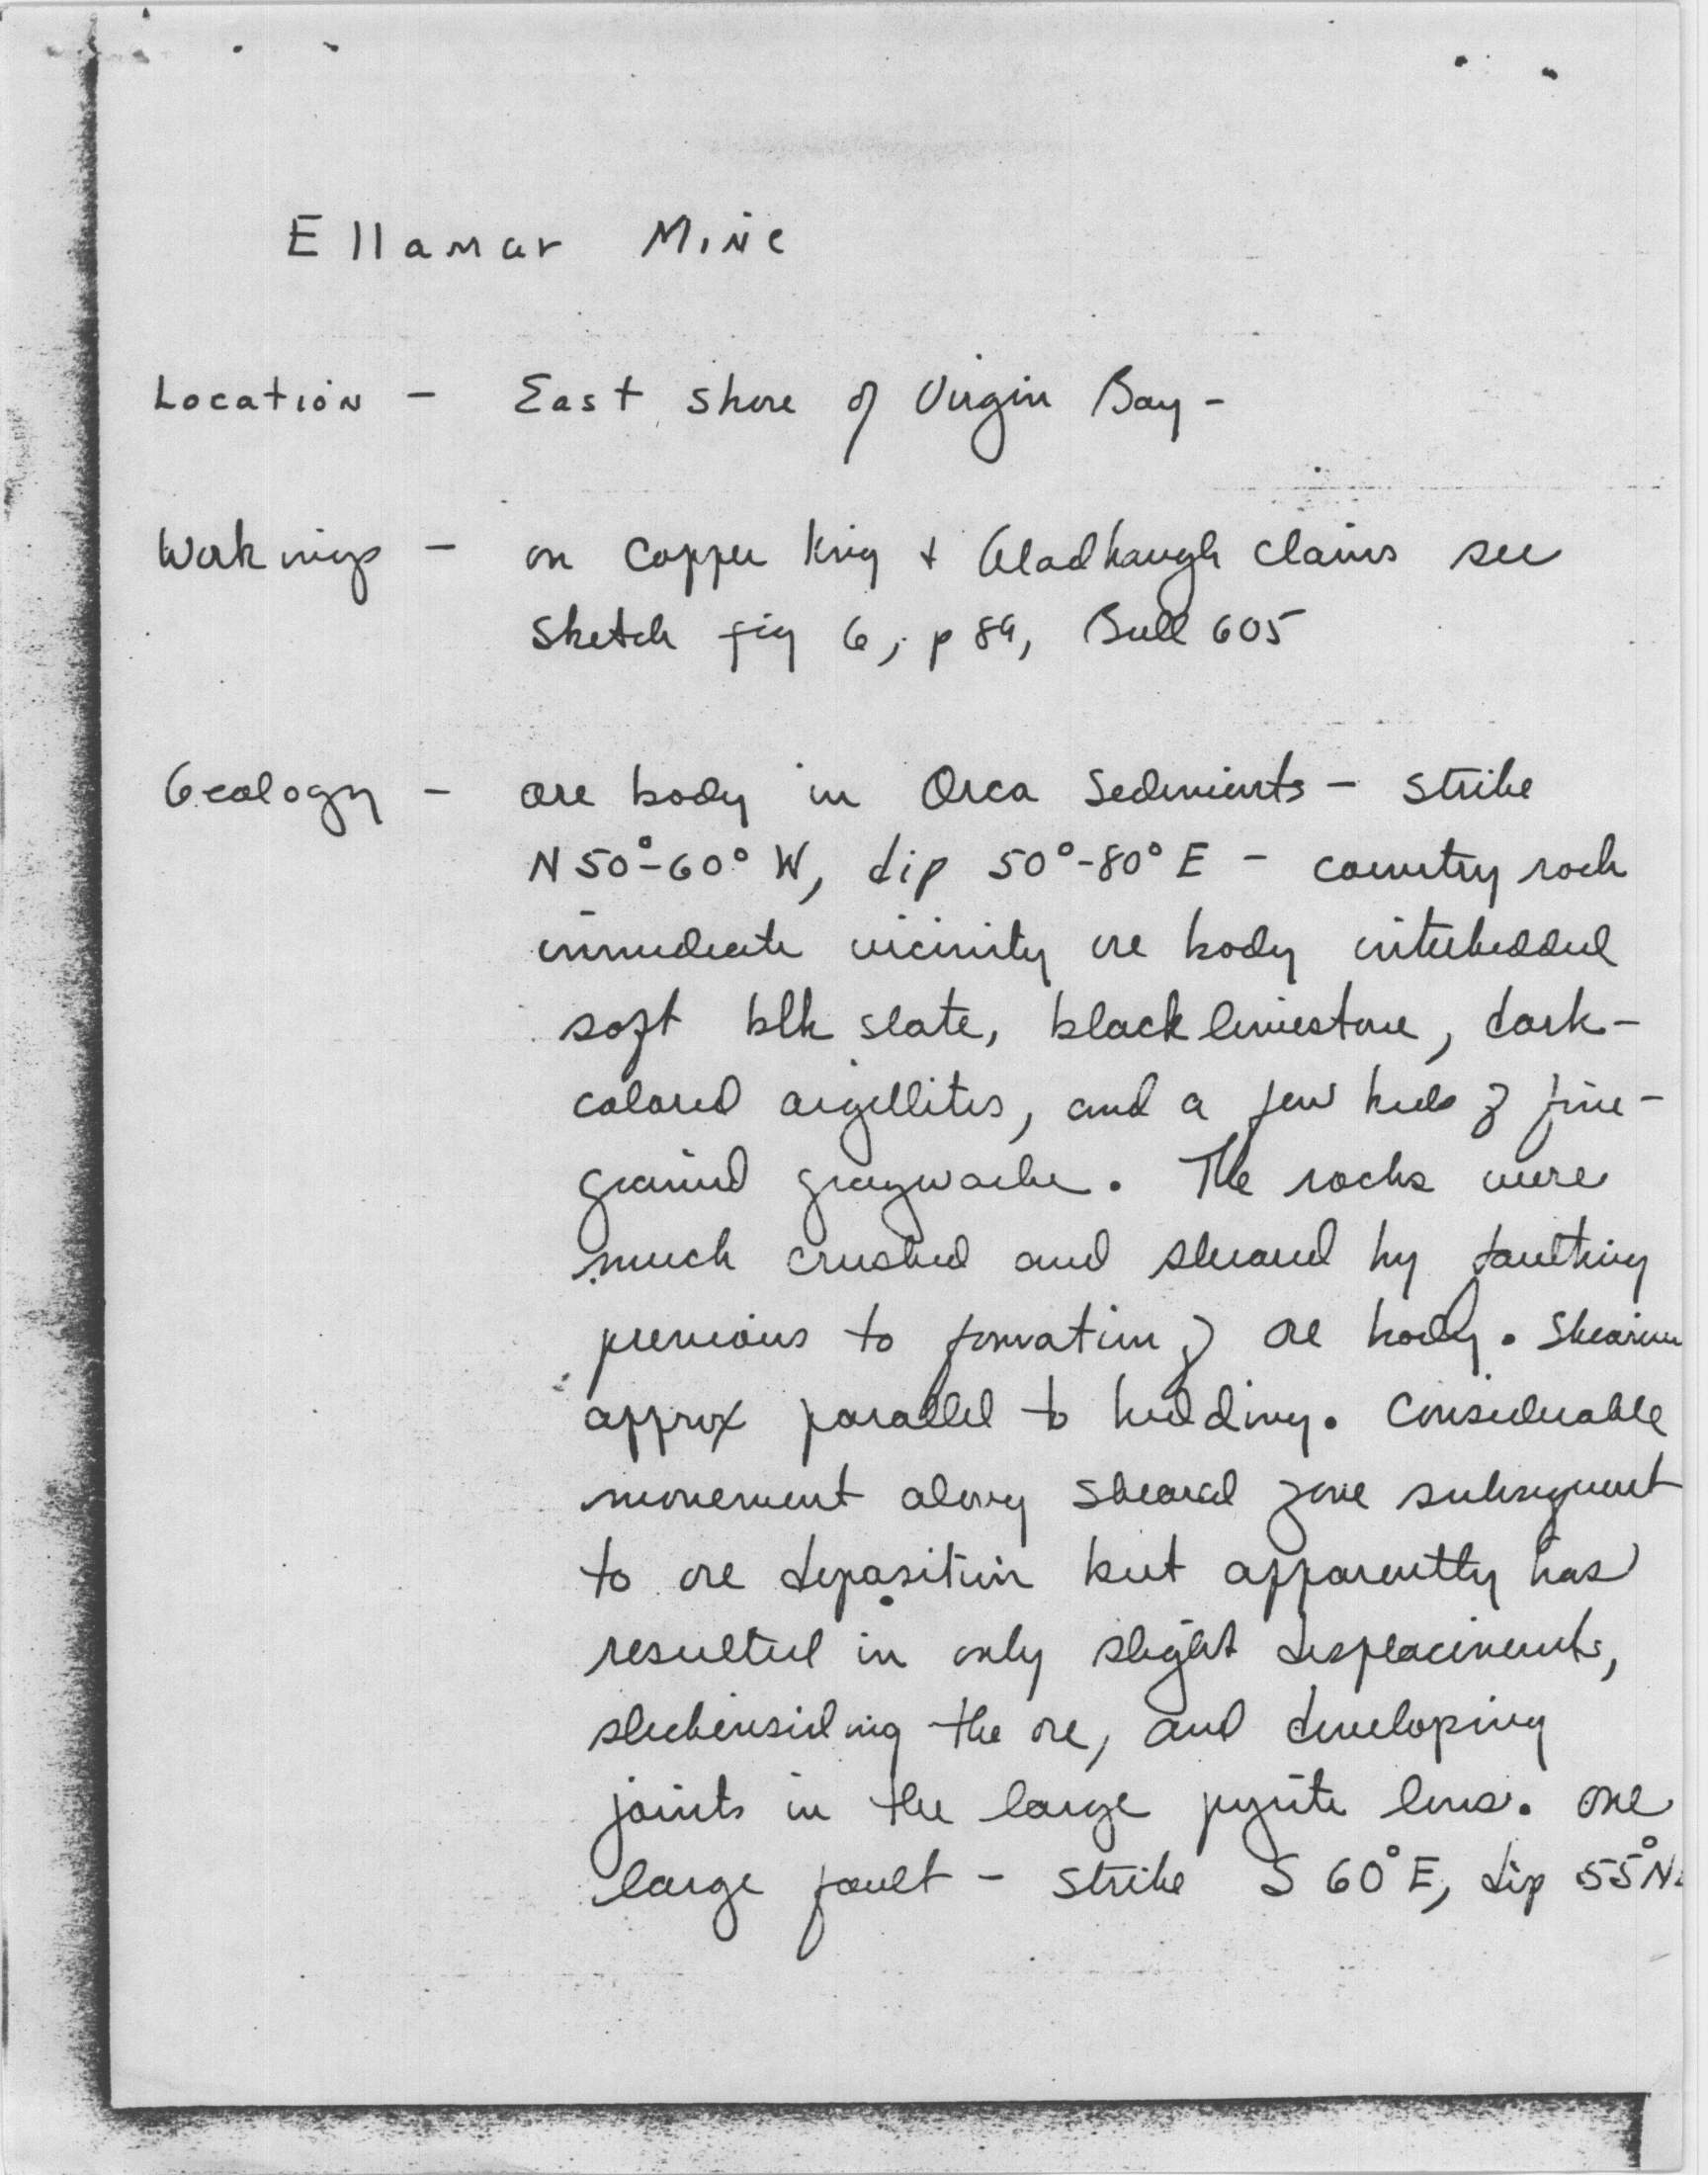 Ellamar Mine
Location - East shore of Virgin Bay -
Workings - on Copper King + Gladhaugh claims see
sketch fig 6, p 89, Bull 605
Geology - ore body in Orca Sediments - strike
N 50°-60° W, dip 50°-80° E - country rock
immediate vicinity ore body interbedded
soft blk slate, black limestone, dark-
colored argillites, and a few beds of fine-
grained graywacke. The rocks were
much crushed and sheared by faulting
previous to formation of ore body. Shearing
approx parallel to bedding. Considerable
movement along sheared zone subsequent
to ore deposition but apparently has
resulted in only slight displacements,
slickensiding the ore, and developing
joints in the large pyrite lens. One
large fault - strike S 60° E, dip 55° N.